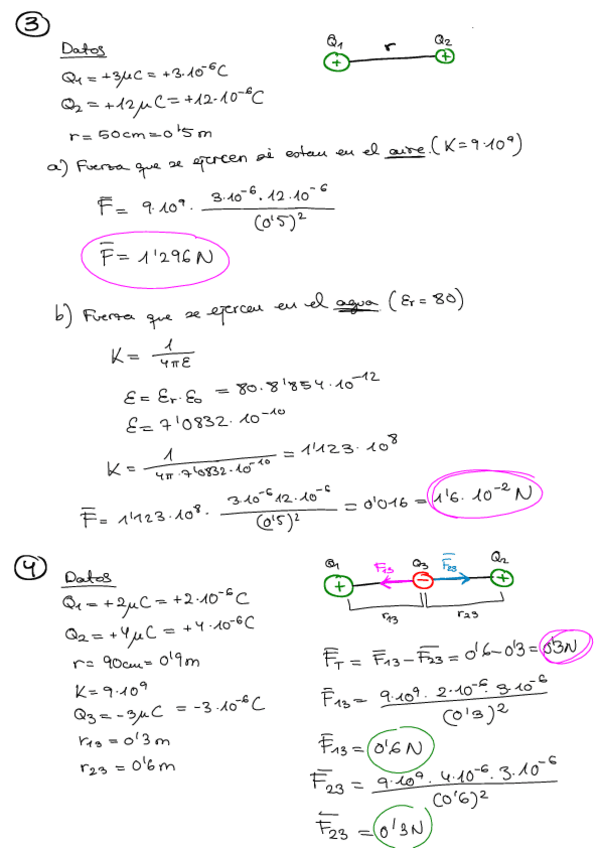 3
Datos
Q₁ = +3μC = +3·10⁻⁶C
Q₂ = +12μC = +12·10⁻⁶C
r = 50cm = 0'5 m
Q₁ r Q₂
+ +
a) Fuerza que se ejercen si estan en el aire. (K = 9·10⁹)
F̅ = 9·10⁹ · (3·10⁻⁶ · 12·10⁻⁶) / (0'5)²
F̅ = 1'296 N
b) Fuerza que se ejercen en el agua (Er = 80)
K = 1 / 4πε
ε = εr·ε₀ = 80·8'854·10⁻¹²
ε = 7'0832·10⁻¹⁰
K = 1 / (4π·7'0832·10⁻¹⁰) = 1'123·10⁸
F̅ = 1'123·10⁸ · (3·10⁻⁶ 12·10⁻⁶) / (0'5)² = 0'016 = 1'6·10⁻² N
4
Datos
Q₁ = +2μC = +2·10⁻⁶C
Q₂ = +4μC = +4·10⁻⁶C
r = 90cm = 0'9m
K = 9·10⁹
Q₃ = -3μC = -3·10⁻⁶C
r₁₃ = 0'3 m
r₂₃ = 0'6 m
Q₁ F̅₁₃ Q₃ F̅₂₃ Q₂
+ − +
r₁₃ r₂₃
F̅T = F̅₁₃ - F̅₂₃ = 0'6 - 0'3 = 0'3N
F̅₁₃ = (9·10⁹ · 2·10⁻⁶ · 3·10⁻⁶) / (0'3)²
F̅₁₃ = 0'6 N
F̅₂₃ = (9·10⁹ · 4·10⁻⁶ · 3·10⁻⁶) / (0'6)²
F̅₂₃ = 0'3 N